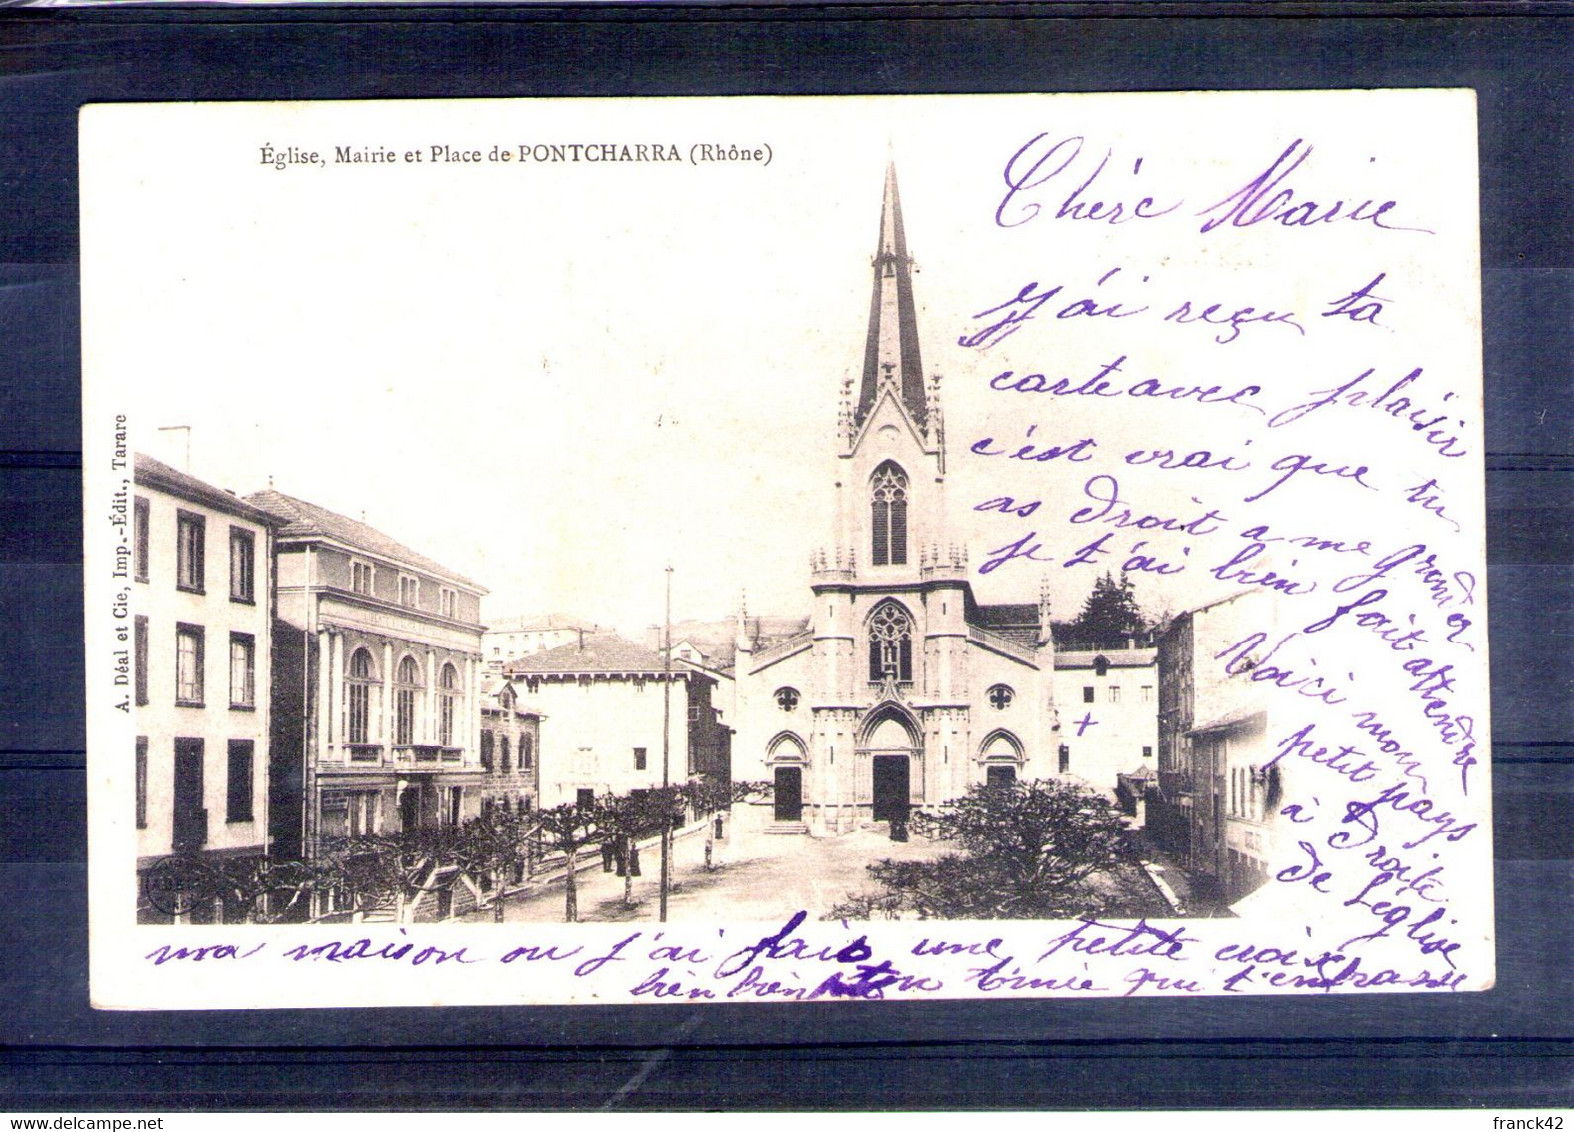 Église, Mairie et Place de PONTCHARRA (Rhône)
A. Déal et Cie, Imp.-Édit., Tarare
Chère Marie
J'ai reçu ta
carte avec plaisir
c'est vrai que tu
as droit a me gronder
je t'ai bien fait attendre
Voici mon
petit pays
à droite
de l'église
ma maison ou j'ai fais une petite croix
bien bien ton t'mie qui t'embrasse
franck42